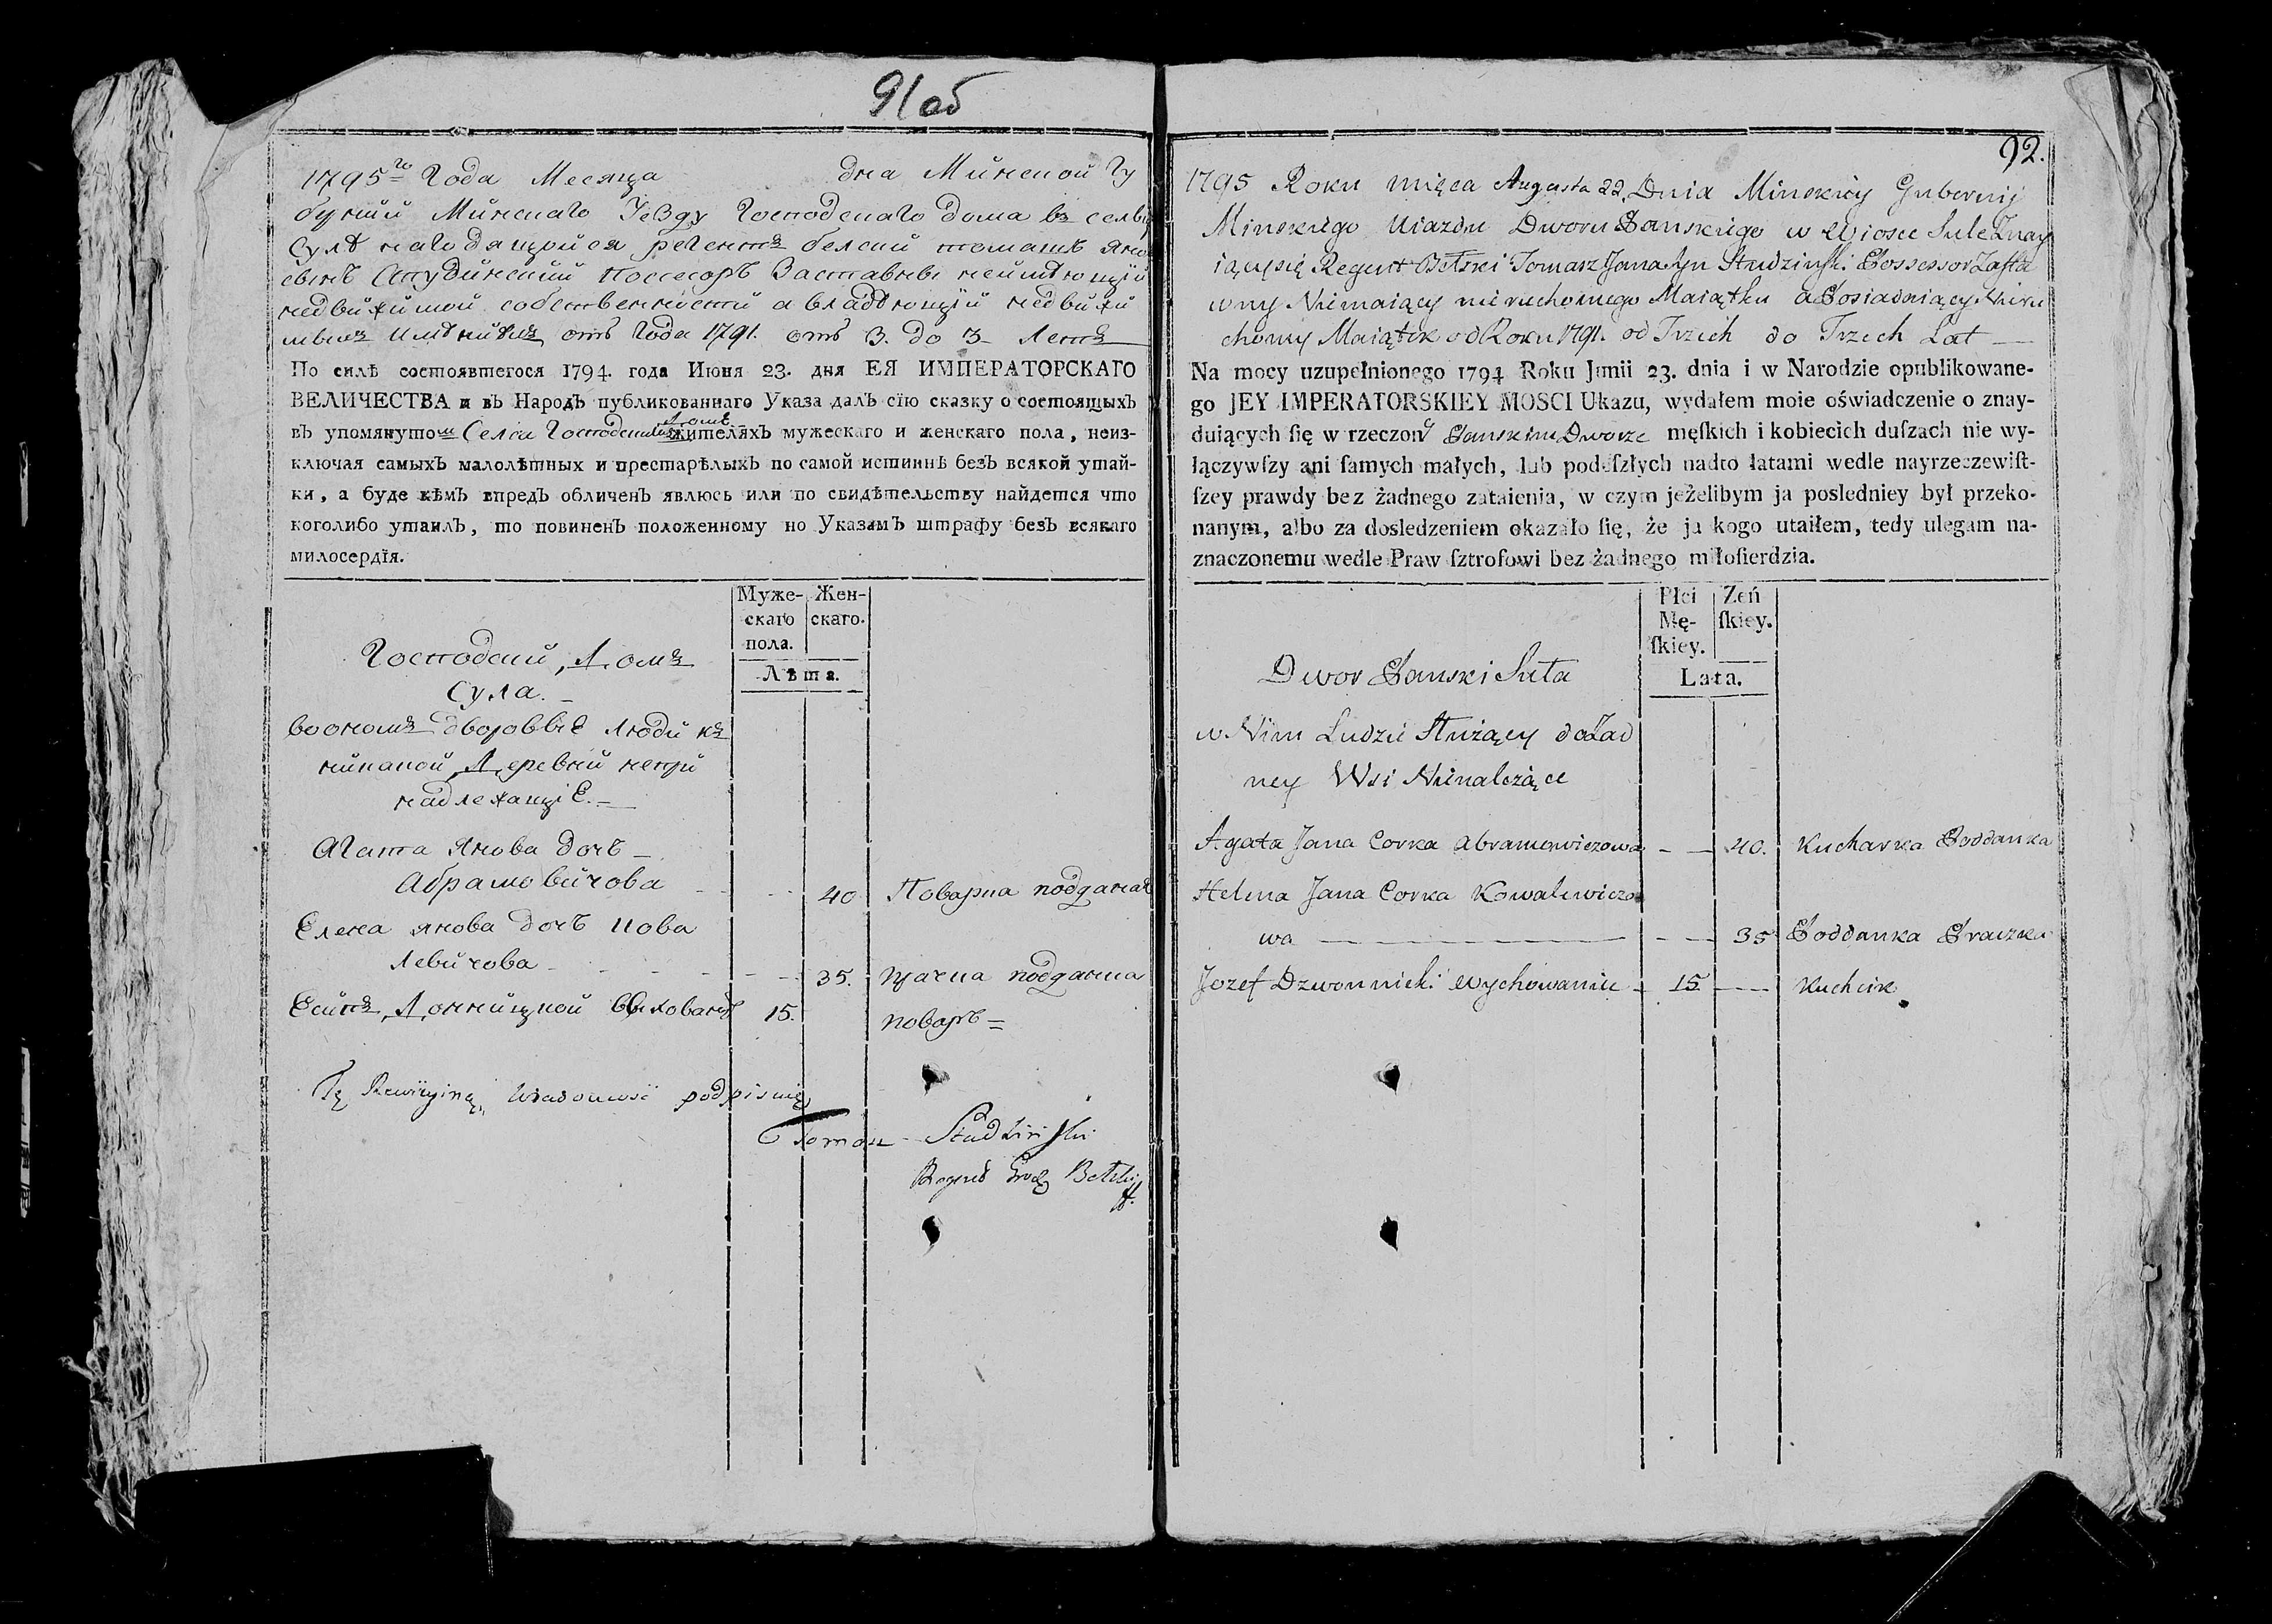 91об
1795го Года Месяца дна Минской Гу
бернии Минскаго Уезду Господскаго дома въ селѣ
Сулѣ находящойся регентъ белский томашъ яно
сынъ Студинский Поссесоръ Заставны неимѣющий
недвижимой собственности а владѣющий недвижи
мымъ имѣниемъ отъ Года 1791. отъ 3. до 3 Летъ
По силѣ состоявшегося 1794. года Июня 23. дня ЕЯ ИМПЕРАТОРСКАГО
ВЕЛИЧЕСТВА и въ Народъ публикованнаго Указа далъ сїю сказку о состоящыхъ
Домѣ
въ упомянутом Селси Господскимъ жителяхъ мужескаго и женскаго пола, неиз-
ключая самыхъ малолѣтных и престарѣлыхъ по самой истиннѣ безъ всякой утай-
ки, а буде кѣмъ впредъ обличенъ явлюсь или по свидѣтельству найдется что
коголибо утаилъ, то повиненъ положенному по Указамъ штрафу безъ всякаго
милосердїя.
Муже- Жен-
скаго скаго.
пола.
Лѣта.
Господский Домъ
Сула.
во ономъ дворовые люди къ
никакой Деревни непри
надлежащіе.
Агата Янова дочь
Абрамовичова 40 Поварка подданая
Елена янова дочь Кова
левичова 35. прачка подданка
Есипъ Донницкой выхованец 15. поваръ
Tę Rewizyiną wiadomość podpisuię
Tomasz Studzinſki
Regent Grodz Bełzki
92.
1795 Roku mięca Augusta 22 Dnia Minskiey Gubernij
Minskiego Uiazdu Dworu Panskiego w Wiosce Sule Znay
iący się Regent Bełski Tomasz Jana Syn Studzinſki Possessor Zaſta
wny Niemaiący nieruchomego Maiątku a Posiadaiący Nieru
chomy Maiątek od Roku 1791. od Trzech do Trzech Lat
Na mocy uzupełnionego 1794 Roku Junii 23. dnia i w Narodzie opublikowane-
go JEY IMPERATORSKIEY MOSCI Ukazu, wydałem moie oświadczenie o znay-
duiących ſię w rzeczony Panskim Dworze męſkich i kobiecich duſzach nie wy-
łączywſzy ani ſamych małych, lub podeſzłych nadto łatami wedle nayrzeczewiſt-
ſzey prawdy bez żadnego zataienia, w czym jeżelibym ja posledniey był przeko-
nanym, albo za dosledzeniem okazało ſię, że ja kogo utaiłem, tedy ulegam na-
znaczonemu wedle Praw ſztrofowi bez żadnego miłoſierdzia.
Płci Zeń
Mę- ſkiey.
ſkiey.
Lata.
Dwor Panski Suła
w Nim Ludzie Służący do Zad
ney Wsi Nienalezące
Agata Jana Corka Abramowiczowa 40. Kucharka Poddanka
Helena Jana Corka Kowalewiczo
wa 35 Poddanka Praczka
Jozef Dzwonnicki Wychowaniec 15 Kuchcik